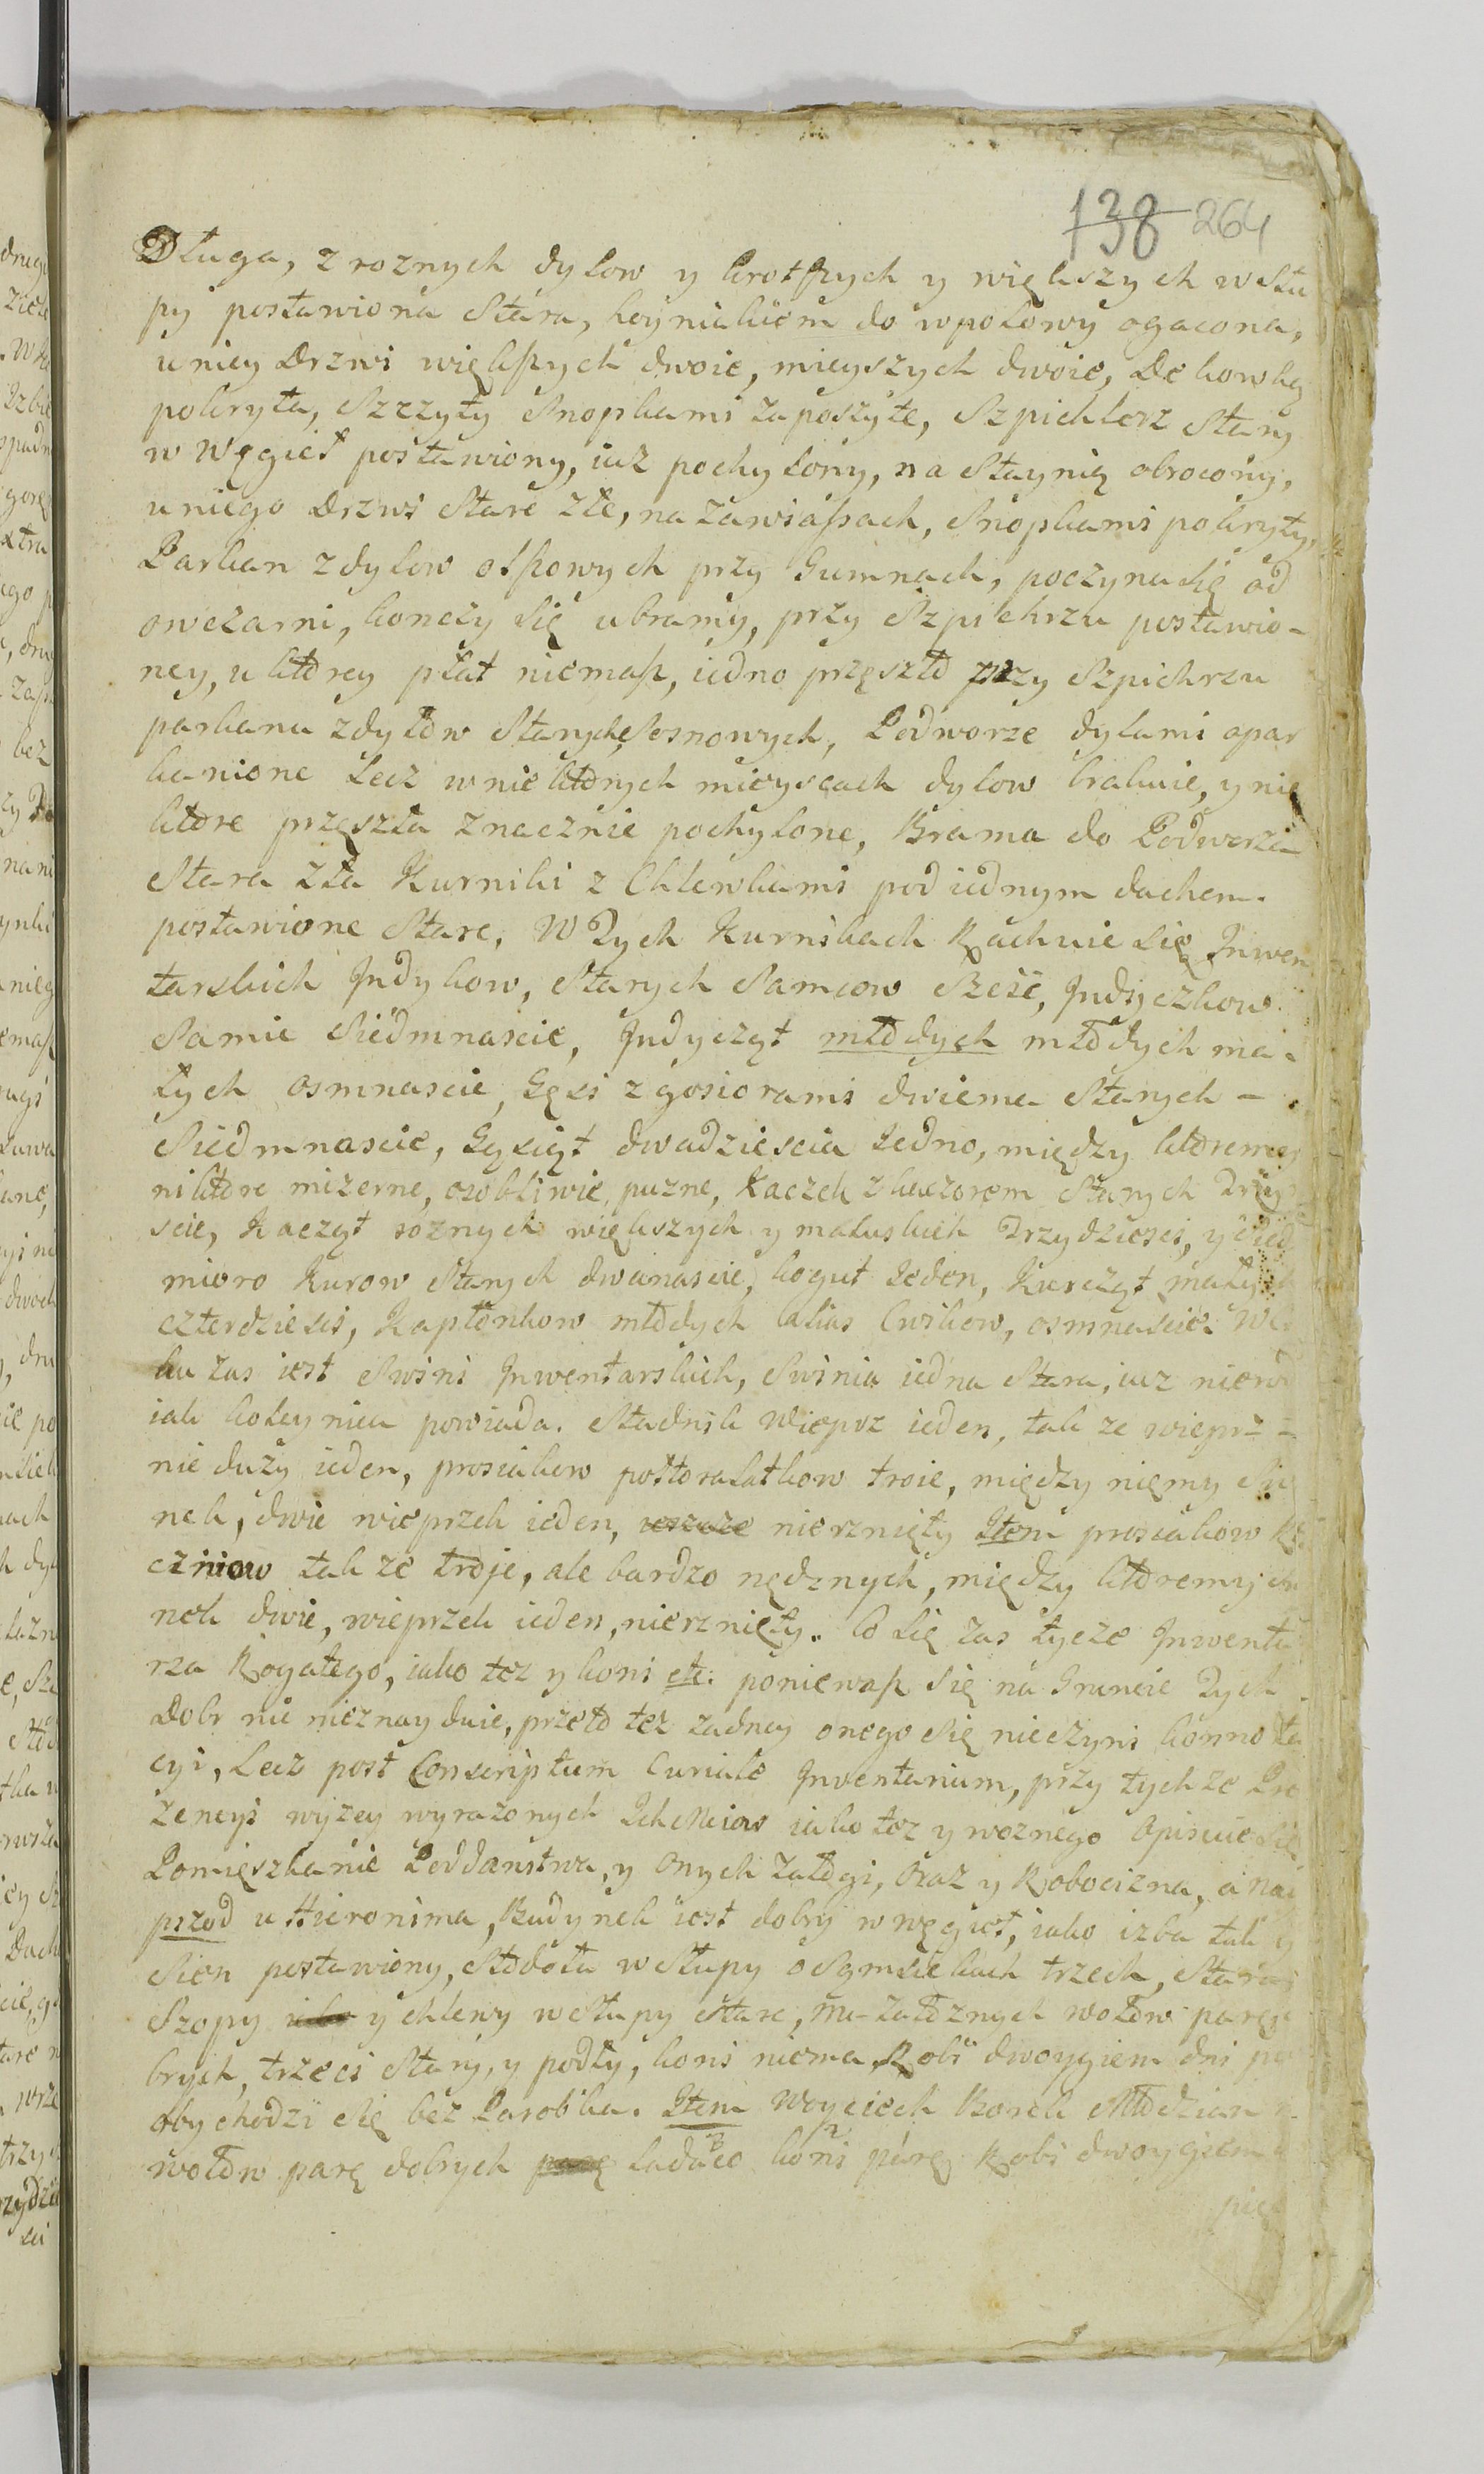 138 264
Długa, z roznych dylow y krotszych y większych w słu
py postawiona Stara, hoynieliem do wpołowy ogacona,
u niey Drzwi większych dwoie, mieyszych dwoie, Dekowką
pokryta, Szczyty Snopkami zaposzyte, Szpichlerz Stary
w Węgieł postawiony, iuz pochylony, na Staynię obrocony,
u niego Drzwi Stare złe, na zawiasach, Snopkami pokryty,
Parkan z dylow olszowych przy Gumnach, poczyna się od
owczarni, konczy się u bramy, przy Szpichrzu postawio-
ney, u ktorey płat niemasz, iedno przęszło przy Szpichrzu
parkanu z dylow Starych Sosnowych, Podworze dylami opar
kanione Lecz w niektorych mieyscach dylow brakuie, y nie
ktore przęszła znacznie pochylone, Brama do Podworza
Stara zła Kurniki z Chlewkami pod iednym dachem
postawione Stare, W Tych Kurnikach Rachuie się Inwen
tarskich Indykow, Starych Samcow Sześć, Indyczkow
Samic Siedmnascie, Indycząt młodych młodych ma-
łych osmnascie, Gęsi z gąsiorami dwiema Starych -
Siedmnascie, Gęsiąt dwadziescia Jedno, między ktoremy
niktore mizerne, osobliwie puzne, Kaczek z kaczorem Starych Trzy
scie, Kacząt roznych większych y maluskich Trzydziesci, y Sied
mioro Kurow Starych dwanascie, kogut Jeden, Kurcząt małych
czterdziesci, Kapłonkow młodych alias Cwikow, osmnascie
ku zas iest Swini Inwentarskich, Swinia iedna Stara, iuz
iak koleynica powiada. Stadnik Wieprz ieden, tak ze wieprz
nie duzy ieden, prosiakow połtoralatkow troie, między niemy
nek, dwie wieprzek ieden, nierznięty Item prosiakow
czniow tak ze troje, ale bardzo nędznych, między ktoremy
nek dwie, wieprzek ieden, nierznięty. Co się zas tycze Inwenta
rza Rogatego, iako tez y koni etc. poniewasz się na Gruncie Tych
Dobr nie nieznayduie, przeto tez zadney onego się nieczyni konnota
cyi, Lecz post Conscriptum Curiale Inventarium, przy tychze Pre
zencyi wyzey wyrazonych IchMciow iako tez y woznego Opisuie się
Pomięszkanie Poddanstwa, y Onych załogi, Oraz y Robocizna, a Nay
przod u Hieronima, Budynek iest dobry w węgieł, iako izba tak y
Sien postawiony, Stodoła w Słupy o Sąmsiekach trzech, Stara
Szopy y chlewy w Słupy Stare, Ma załoznych wołow parę
brych, trzeci Stary, y podły, koni niema, Robi dwoygiem dni
obychodzi się bez Parobka. Item Woyciech Borek Młodzian
wołow parę dobrych ladaco koni parę Robi dwoygiem
pięc